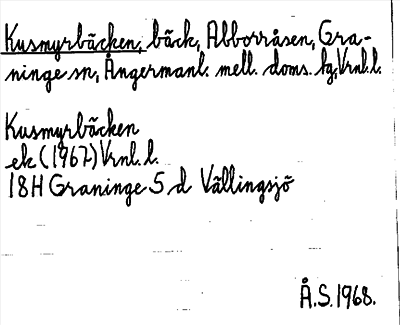 Kusmyrbäcken, bäck, Abborråsen, Gra-
ninge sn, Ångermanl. mell. doms. fg, Vrnl. l.
Kusmyrbäcken
ek (1967) Vrnl. l.
18H Graninge 5 d Vällingsjö
Å.S. 1968.